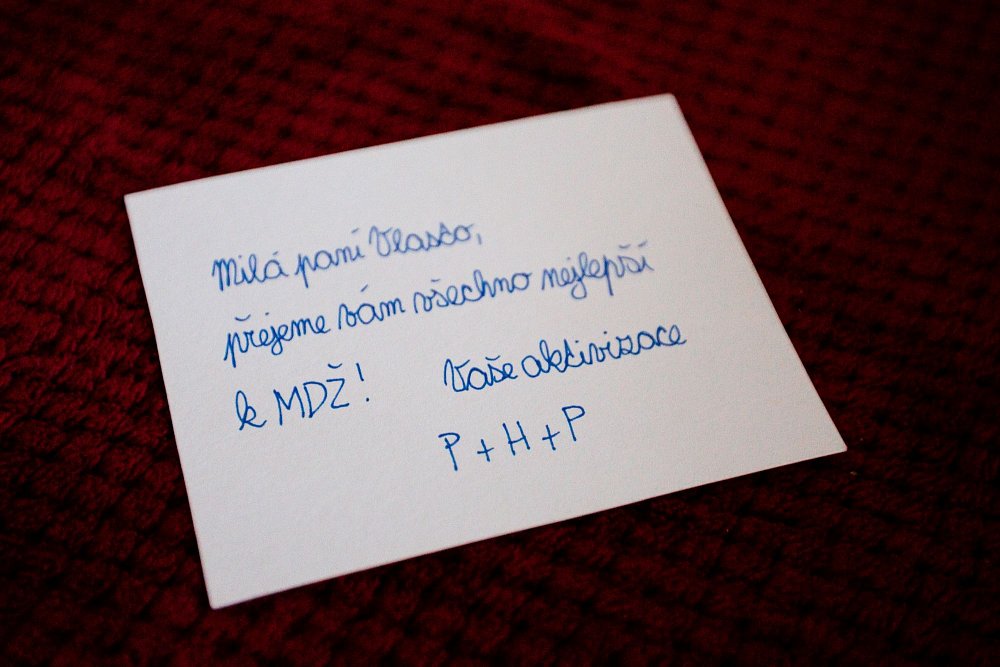 Milá paní Vlasto,
přejeme vám všechno nejlepší
k MDŽ!
Vaše aktivizace
P + H + P